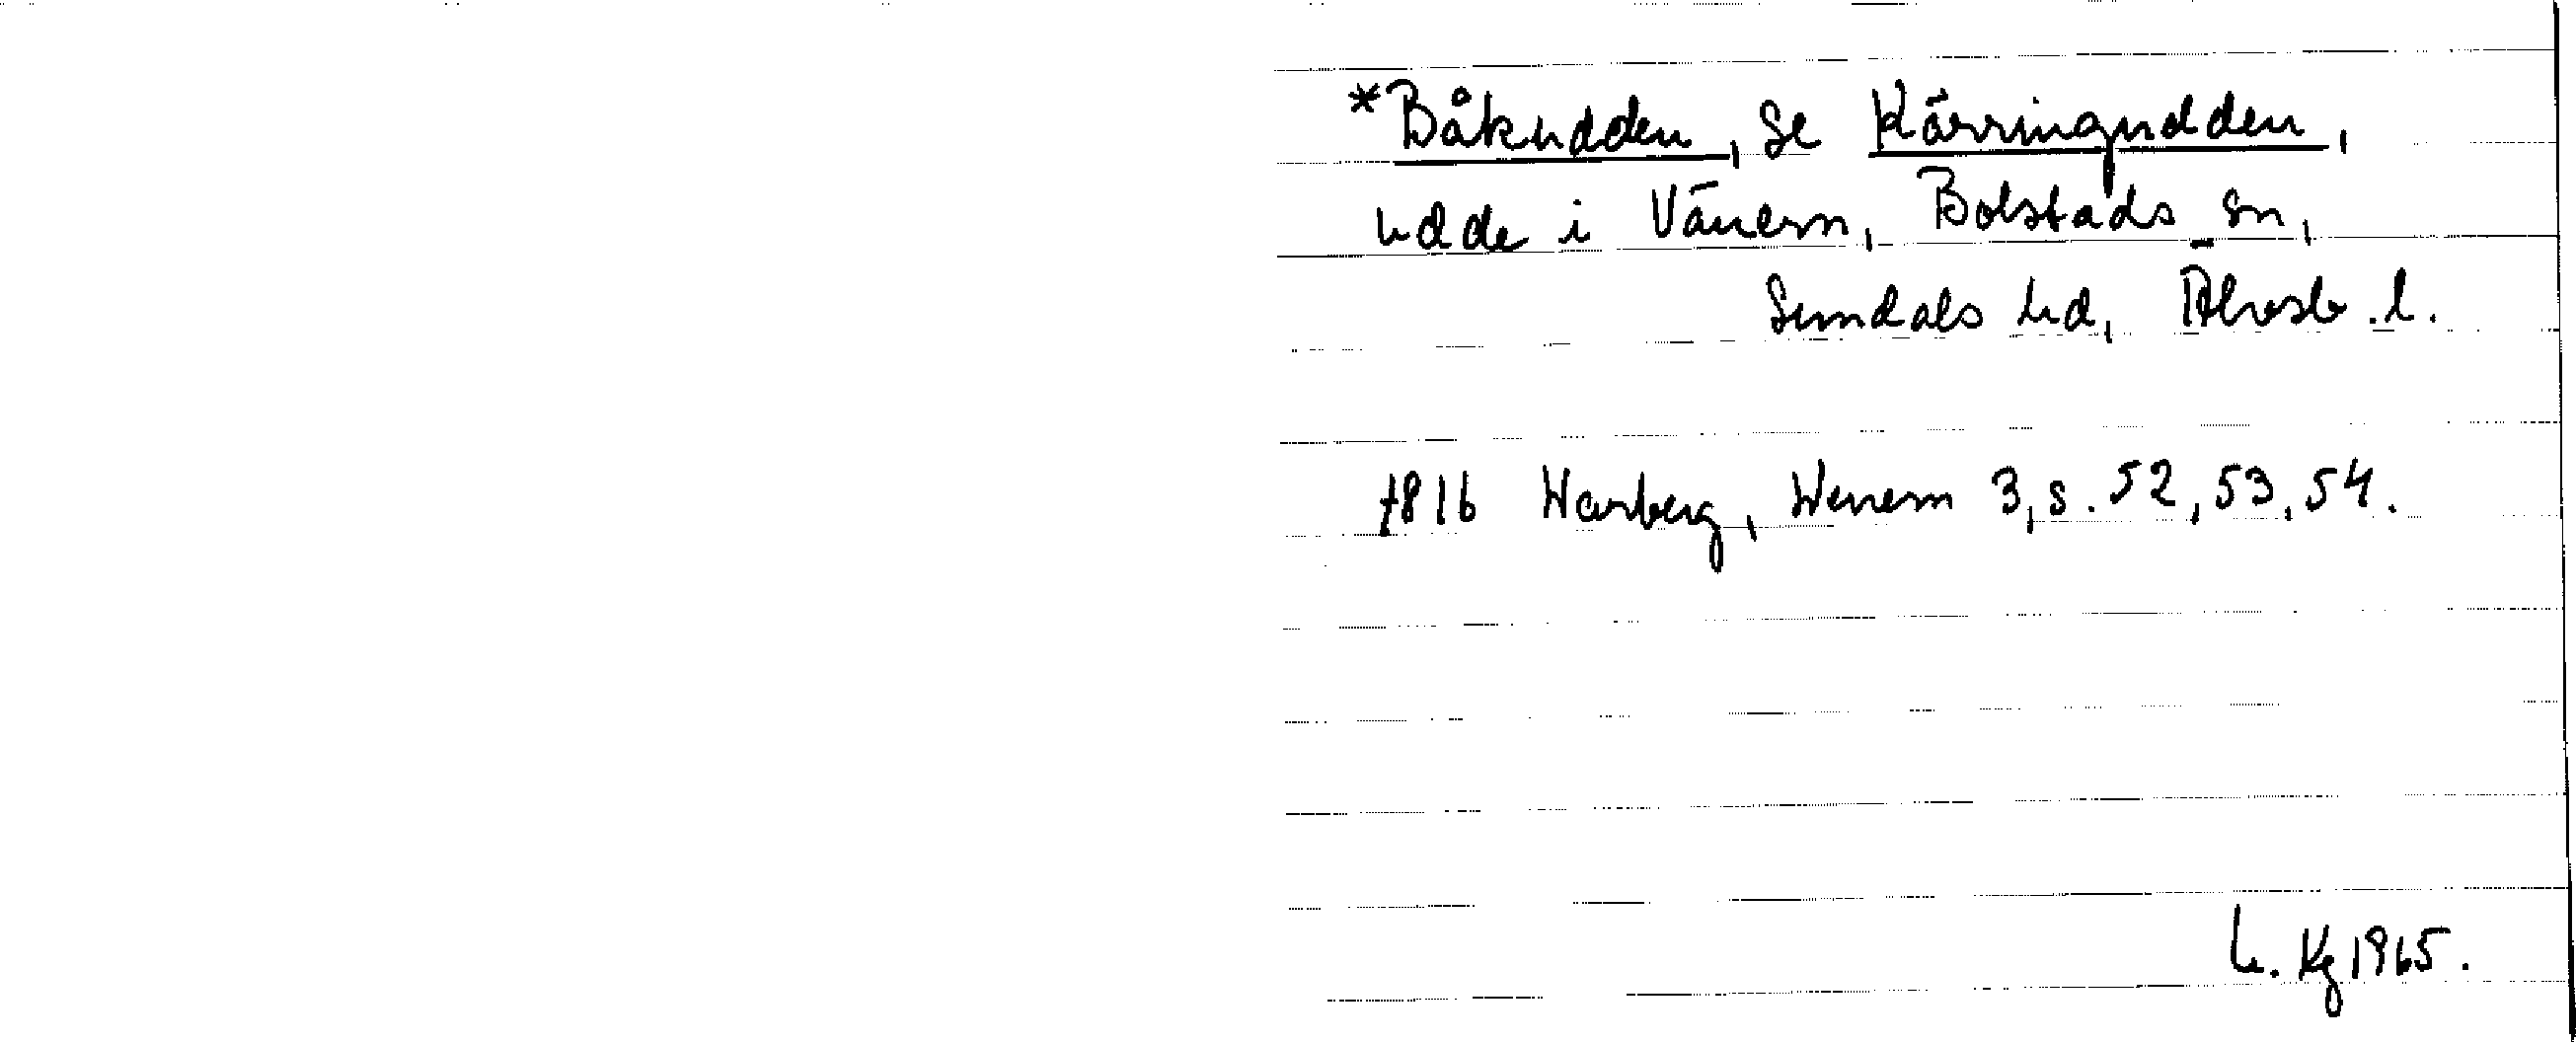 *Båkudden, se Kärringudden,
udde i Vänern, Bolstads sn,
Sundals hd, Älvsb. l.
1816 Warberg, Wenern 3, s. 52, 53, 54.
Kg 1965.